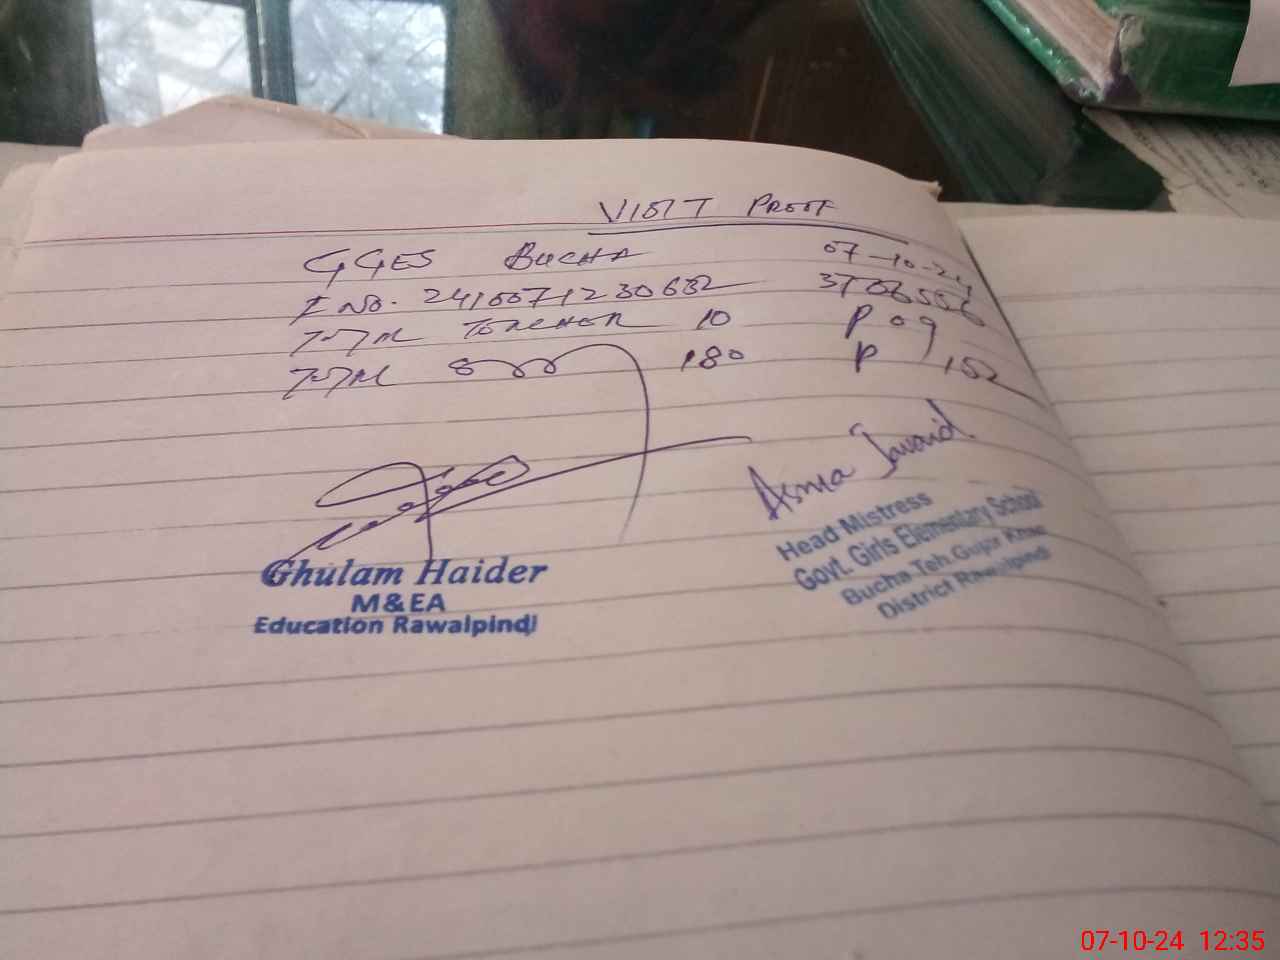 VISIT PROOF
GGES BUCHA 07-10-24
E NO. 2410071230632 37330556
TOTAL TEACHER 10 P 09
TOTAL 180 P 152
Asma Javaid
Ghulam Haider
M&EA
Education Rawalpindi
Head Mistress
Govt. Girls Elementary School
Bucha Teh.Gujar Khan
District Rawalpindi
07-10-24 12:35